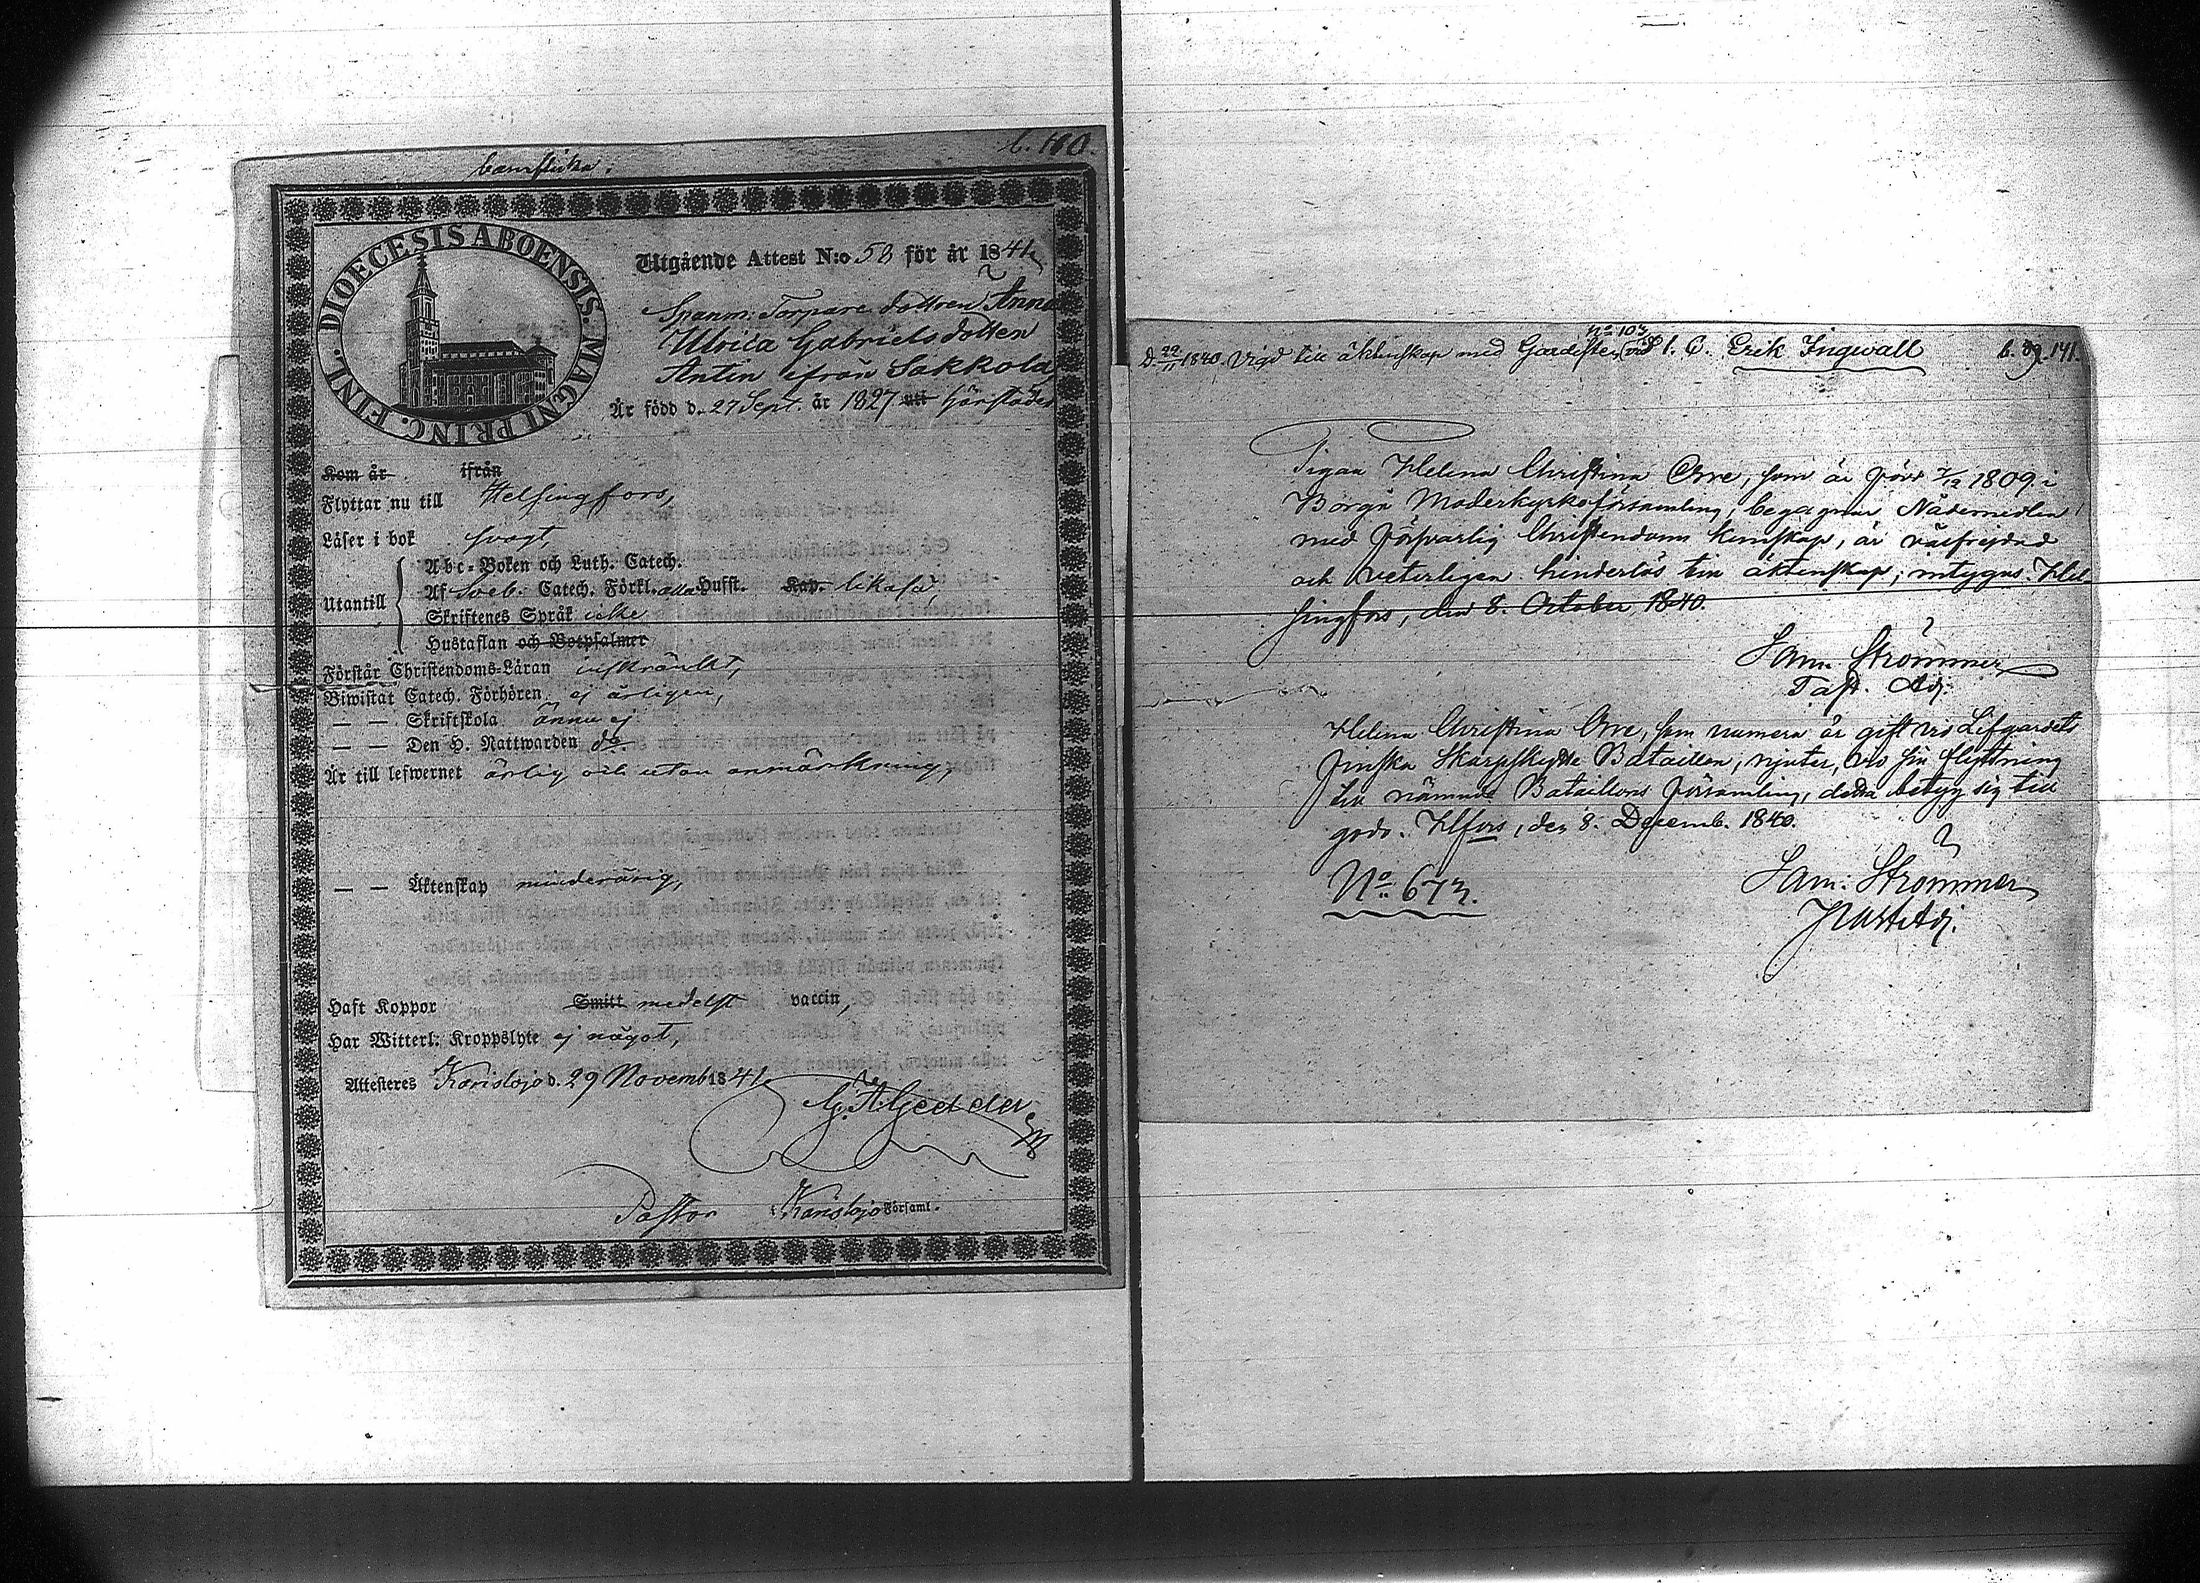 barnflicka.
b. 140.
DIOECESIS ABOENSIS. MAGNI PRINC. FINL.
Utgående Attest N:o 58 för år 1841
Spanm: Torpare dottren Anna
Ulrica Gabrielsdotter
Antin ifrån Sakkola
Är född d. 27 Sept. år 1827 uti härstädes
Kom år ifrån
Flyttar nu till Helsingfors,
Läser i bok svagt,
Utantill
Abc-Boken och Luth. Catech.
Af Sveb. Catech. Förkl. alla Hufst. Kap. likaså
Skriftenes Språk icke
Hustaflan och Botpsalmer
Förstår Christendoms-Läran inskränkt,
Biwistat Catech. Förhören ej årligen,
— — Skriftskola ännu ej
— — Den H. Nattwarden do
Är till lefwernet ärlig och utan anmärkning,
— — Äktenskap minderårig,
Haft Koppor Smitt medelst vaccin,
Har Witterl: Kroppslyte ej något,
Attesteres Karislojo d. 29 Novemb 1841
G. A. Gedder
Pastor i Karislojo Församl.
No 103
D. 22/11 1840. Vigd till äktenskap med Gardisten vid 1. C. Erik Ingwall b. 141.
Pigan Helena Christina Orre, som är född 7/12 1809 i
Borgå Moderkyrkoförsamling, begagnar Nådemedlen
med försvarlig Christendoms kunskap, är välfrejdad
och veterligen hinderlös till äktenskap; intygas. Hel-
singfors, den 8. October 1840.
Sam. Strömmer
Past. Adj.
Helena Christina Orre, som numera är gift vid Lifgardets
finska Skarpskytte Bataillon, njuter, vid sin flyttning
till nämnde Bataillons församling, detta betyg sig till
godo. Hlfors, den 8. Decemb. 1840.
No 673.
Sam: Strömmer
Past. Adj.